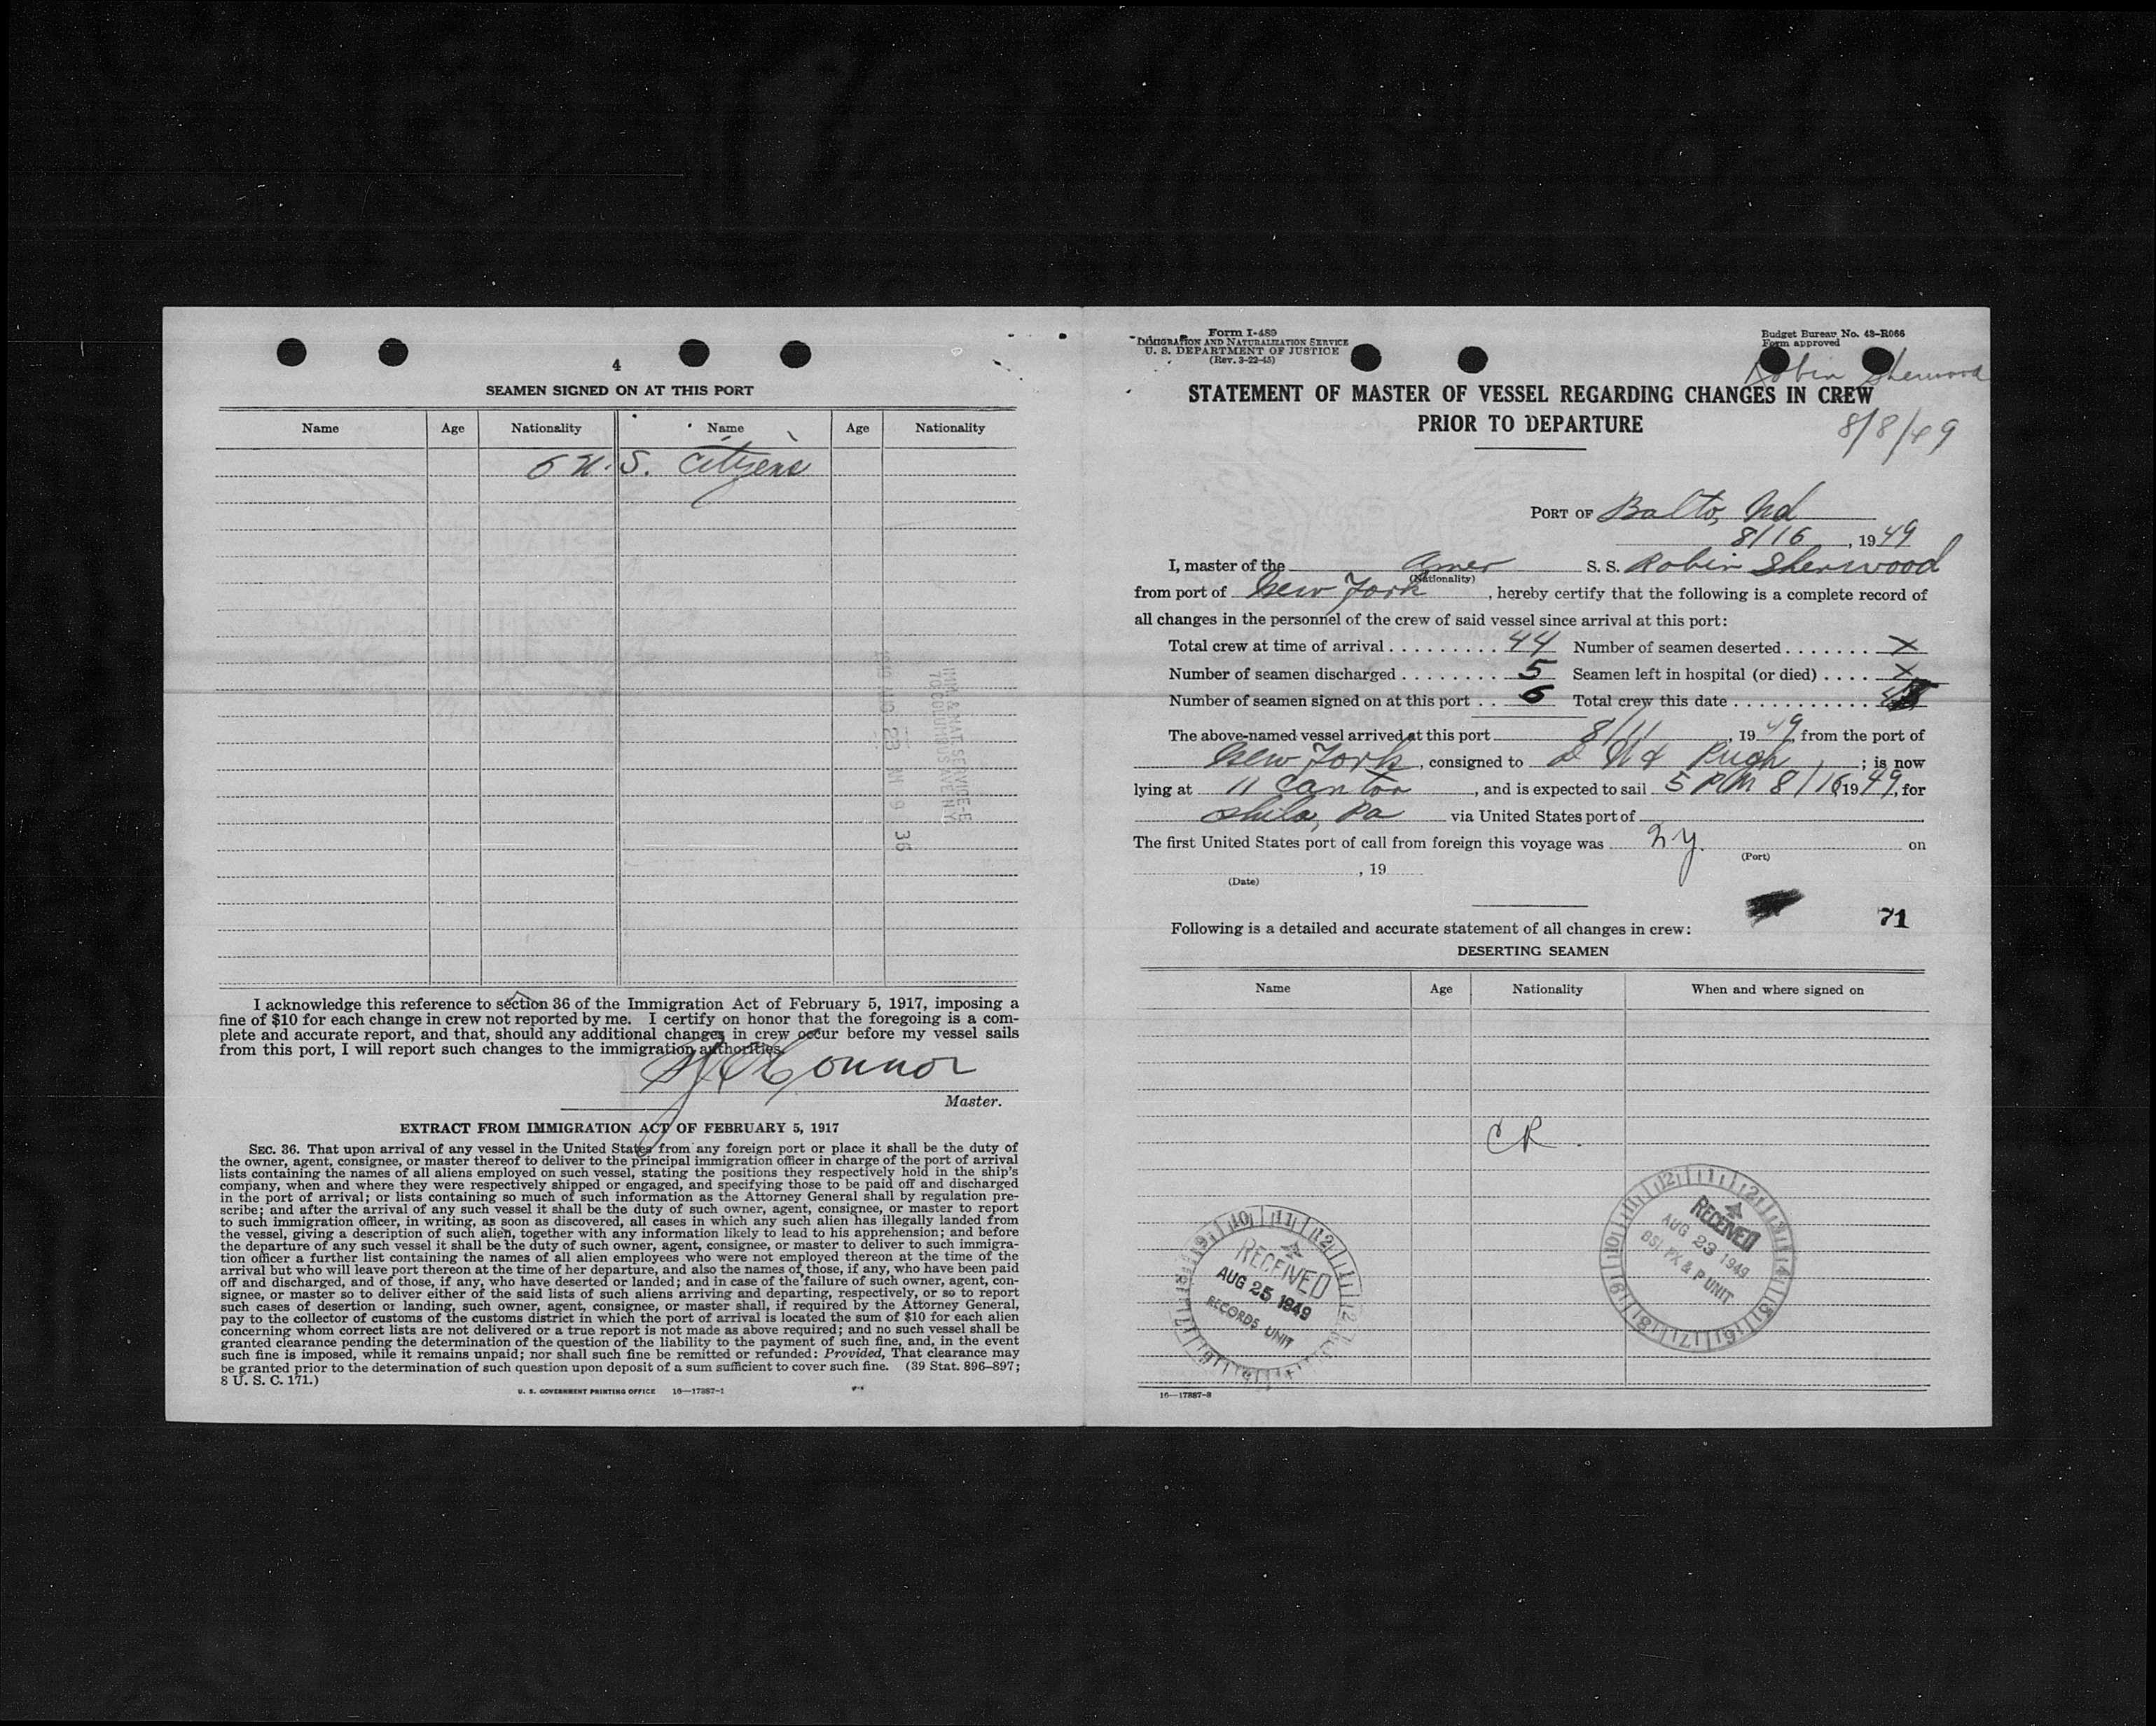 4
SEAMEN SIGNED ON AT THIS PORT
Name Age Nationality Name Age Nationality
6 U. S. Citizens
IMM & NAT SERVICE-E
70 COLUMBUS AVE N Y
1949 AUG 23 AM 9 36
I acknowledge this reference to section 36 of the Immigration Act of February 5, 1917, imposing a
fine of $10 for each change in crew not reported by me. I certify on honor that the foregoing is a com-
plete and accurate report, and that, should any additional changes in crew occur before my vessel sails
from this port, I will report such changes to the immigration authorities.
O'Connor
Master.
EXTRACT FROM IMMIGRATION ACT OF FEBRUARY 5, 1917
SEC. 36. That upon arrival of any vessel in the United States from any foreign port or place it shall be the duty of
the owner, agent, consignee, or master thereof to deliver to the principal immigration officer in charge of the port of arrival
lists containing the names of all aliens employed on such vessel, stating the positions they respectively hold in the ship's
company, when and where they were respectively shipped or engaged, and specifying those to be paid off and discharged
in the port of arrival; or lists containing so much of such information as the Attorney General shall by regulation pre-
scribe; and after the arrival of any such vessel it shall be the duty of such owner, agent, consignee, or master to report
to such immigration officer, in writing, as soon as discovered, all cases in which any such alien has illegally landed from
the vessel, giving a description of such alien, together with any information likely to lead to his apprehension; and before
the departure of any such vessel it shall be the duty of such owner, agent, consignee, or master to deliver to such immigra-
tion officer a further list containing the names of all alien employees who were not employed thereon at the time of the
arrival but who will leave port thereon at the time of her departure, and also the names of those, if any, who have been paid
off and discharged, and of those, if any, who have deserted or landed; and in case of the failure of such owner, agent, con-
signee, or master so to deliver either of the said lists of such aliens arriving and departing, respectively, or so to report
such cases of desertion or landing, such owner, agent, consignee, or master shall, if required by the Attorney General,
pay to the collector of customs of the customs district in which the port of arrival is located the sum of $10 for each alien
concerning whom correct lists are not delivered or a true report is not made as above required; and no such vessel shall be
granted clearance pending the determination of the question of the liability to the payment of such fine, and, in the event
such fine is imposed, while it remains unpaid; nor shall such fine be remitted or refunded: Provided, That clearance may
be granted prior to the determination of such question upon deposit of a sum sufficient to cover such fine. (39 Stat. 896-897;
8 U. S. C. 171.)
U. S. GOVERNMENT PRINTING OFFICE 16—17887-1
Form I-489
IMMIGRATION AND NATURALIZATION SERVICE
U. S. DEPARTMENT OF JUSTICE
(Rev. 3-22-45)
Budget Bureau No. 43-R066
Form approved
Robin Sherwood
STATEMENT OF MASTER OF VESSEL REGARDING CHANGES IN CREW
PRIOR TO DEPARTURE
8/8/49
PORT OF Balto, Md
8/16, 1949
I, master of the Amer S. S. Robin Sherwood
(Nationality)
from port of New York, hereby certify that the following is a complete record of
all changes in the personnel of the crew of said vessel since arrival at this port:
Total crew at time of arrival 44 Number of seamen deserted X
Number of seamen discharged 5 Seamen left in hospital (or died) X
Number of seamen signed on at this port 6 Total crew this date
The above-named vessel arrived at this port 8/11, 1949, from the port of
New York, consigned to Pugh; is now
lying at 11 Canton, and is expected to sail 5 PM 8/16 1949, for
Phila, Pa via United States port of
The first United States port of call from foreign this voyage was N y. on
(Port)
, 19
(Date)
71
Following is a detailed and accurate statement of all changes in crew:
DESERTING SEAMEN
Name Age Nationality When and where signed on
CR
RECEIVED
AUG 25 1949
RECORDS UNIT
RECEIVED
AUG 23 1949
BSI, PX & P UNIT
16—17887-3